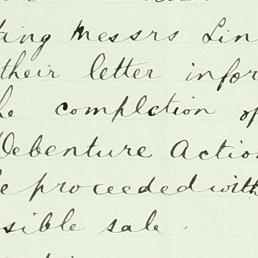 ting Messrs Lin
their letter infor
he complction of
Debenture Action
e proceeded with
sible sale.